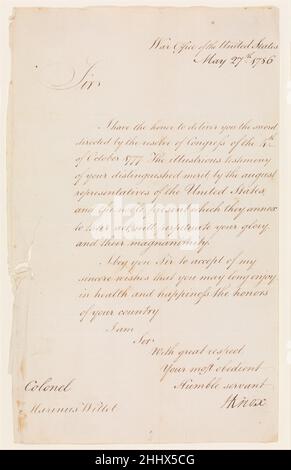 War Office of the United States
May 27th 1786
Sir
I have the honor to deliver you the sword
directed by the resolve of Congress of the 4th
of October 1777. The illustrious testimony
of your distinguished merit by the august
representatives of the United States,
and the present which they annex
to it will perpetuate your glory
and their magnanimity.
I beg you Sir to accept of my
sincere wishes that you may long enjoy
in health and happiness the honors
of your country
I am
Sir
With great respect
Your most obedient
Humble servant
HKnox
Colonel
Marinus Willet
alamy
Image ID: 2HHX5CG
www.alamy.com